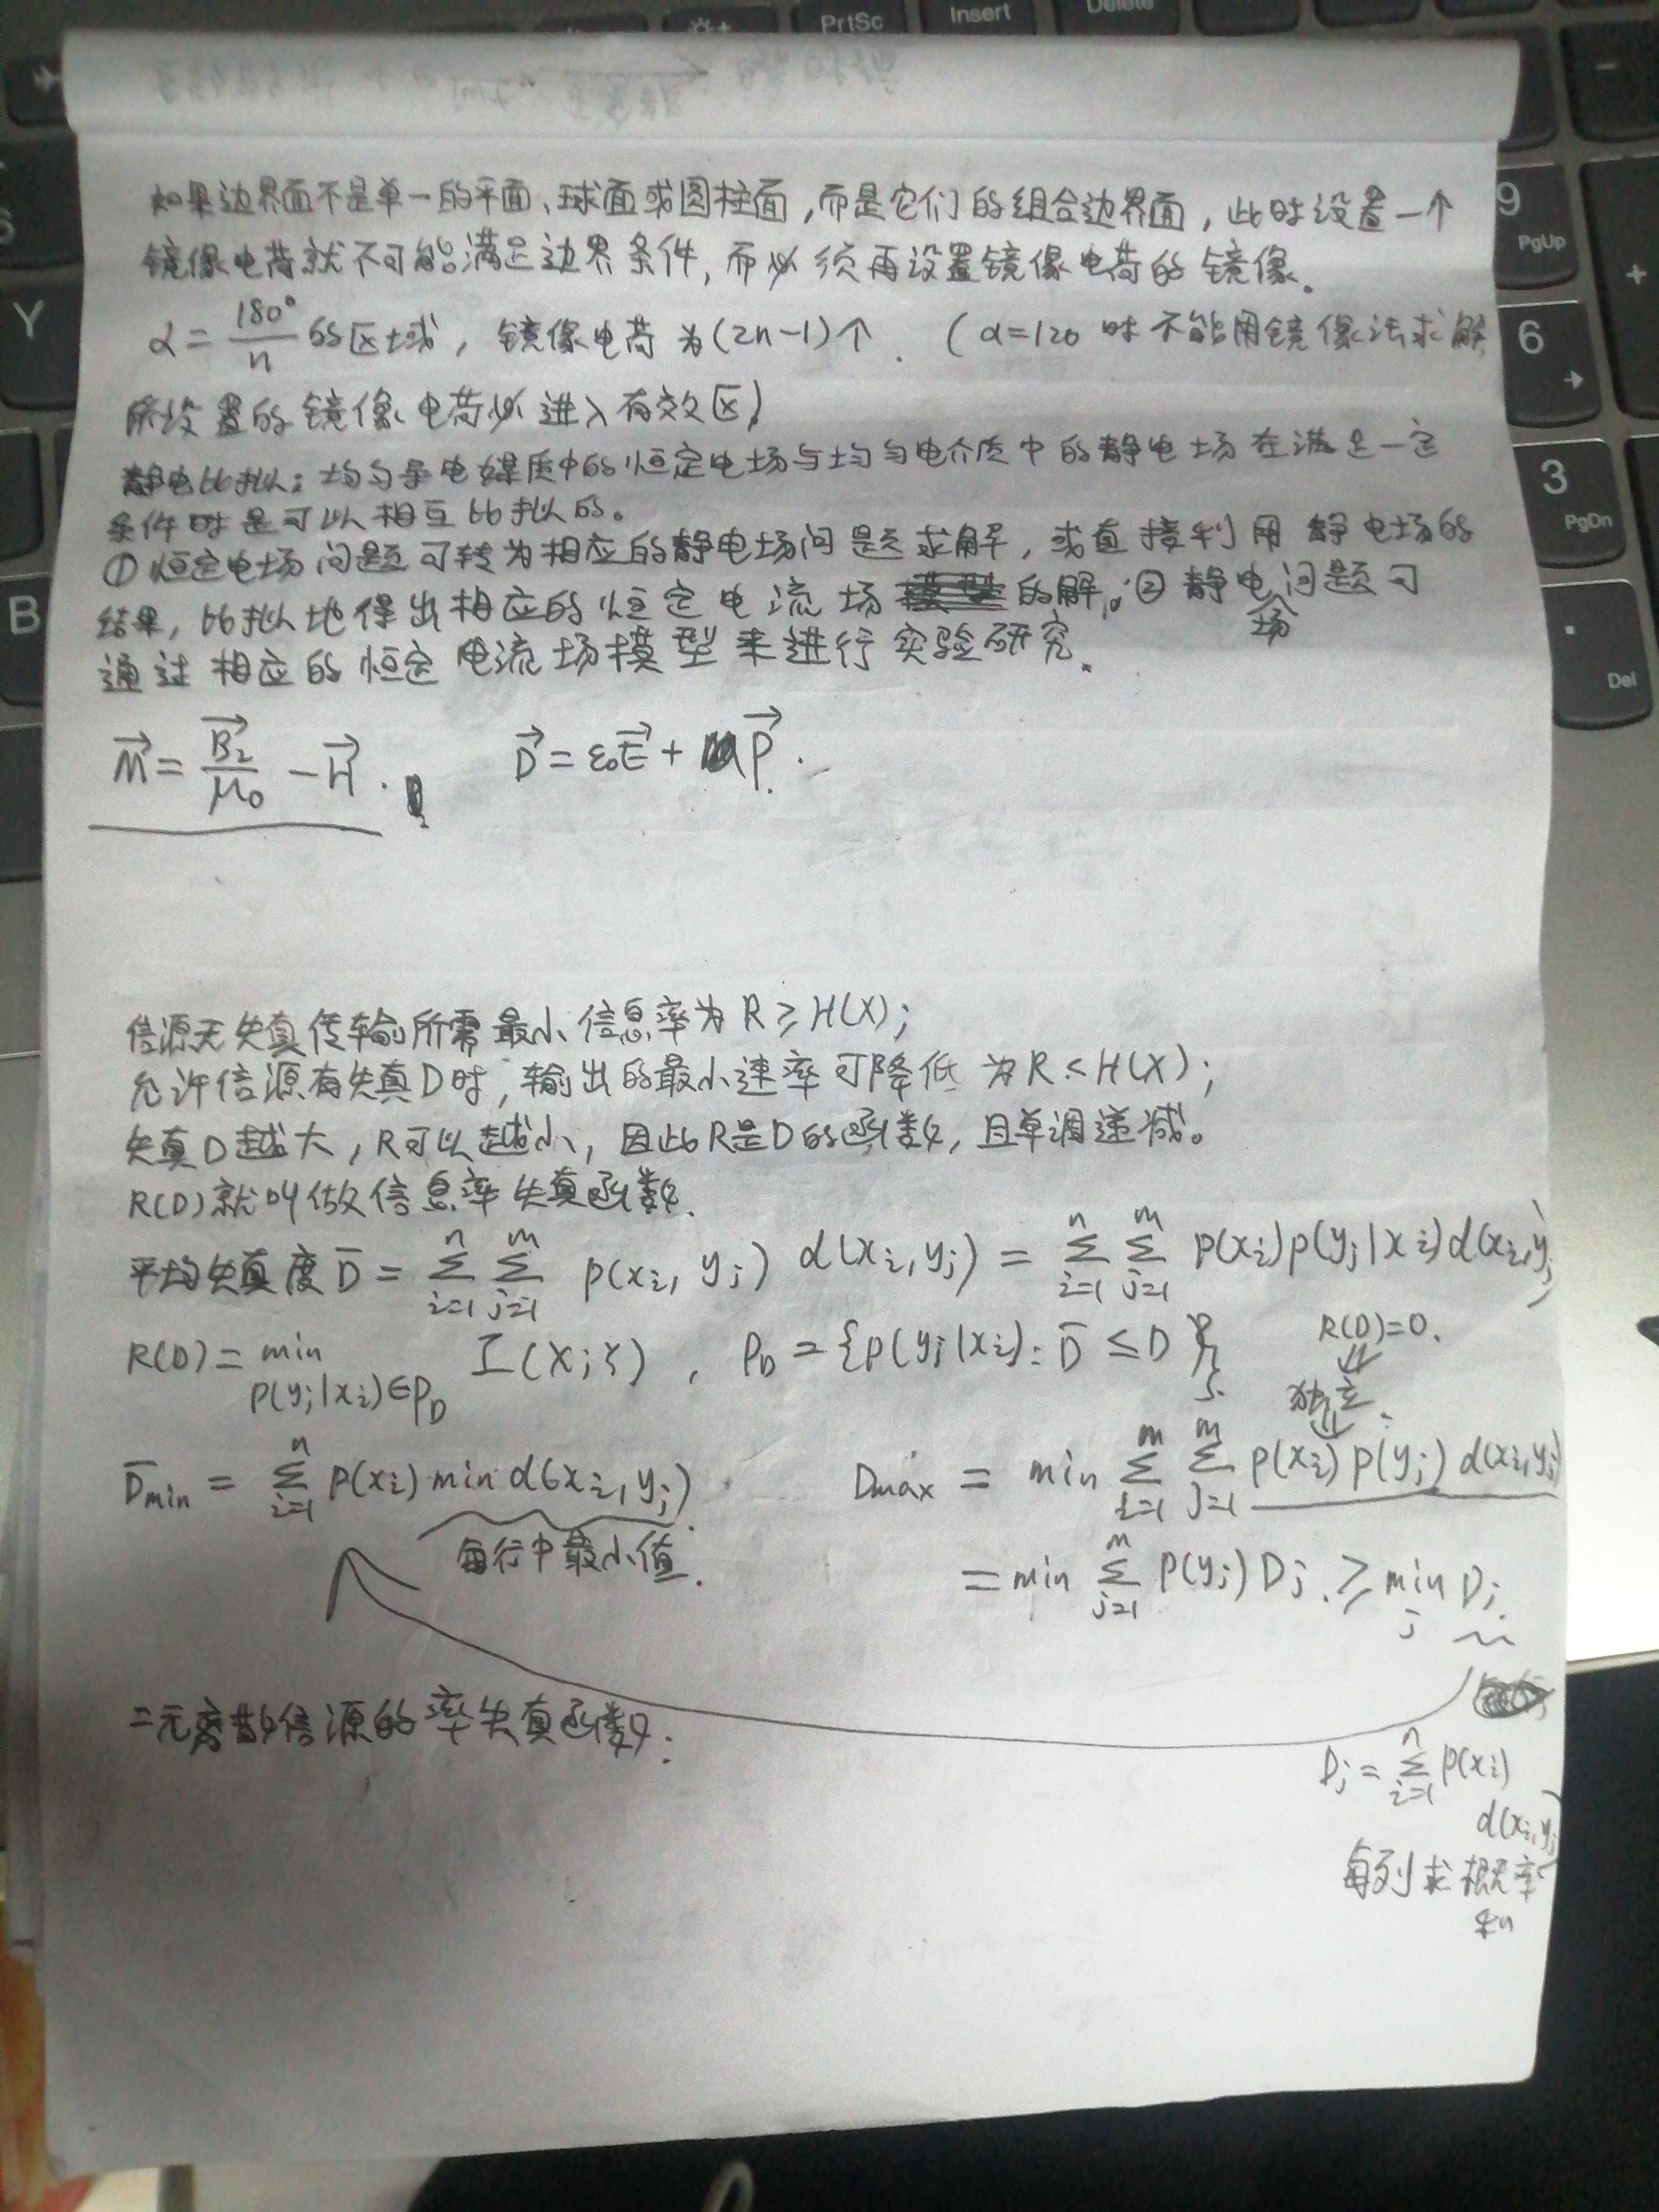 PrtSc
Insert
Delete
9
PgUp
6
3
PgDn
Del
Y
B
+
如果边界面不是单一的平面、球面或圆柱面,而是它们的组合边界面,此时设置一个
镜像电荷就不可能满足边界条件,而必须再设置镜像电荷的镜像.
α = 180°/n 的区域, 镜像电荷为(2n-1)个. (α=120 时不能用镜像法求解
所设置的镜像电荷必进入有效区)
静电比拟: 均匀导电媒质中的恒定电场与均匀电介质中的静电场在满足一定
条件时是可以相互比拟的。
① 恒定电场问题可转为相应的静电场问题求解, 或直接利用静电场的
结果, 比拟地得出相应的恒定电流场的解。② 静电场问题可
通过相应的恒定电流场模型来进行实验研究.
M⃗ = B⃗₂/μ₀ - H⃗. D⃗ = ε₀E⃗ + P⃗.
信源无失真传输所需最小信息率为 R ≥ H(X);
允许信源有失真D时, 输出的最小速率可降低为 R < H(X);
失真D越大, R可以越小, 因此R是D的函数, 且单调递减。
R(D)就叫做信息率失真函数.
平均失真度 D̄ = Σ_{i=1}^{n} Σ_{j=1}^{m} p(xi, yj) d(xi, yj) = Σ_{i=1}^{n} Σ_{j=1}^{m} p(xi)p(yj|xi)d(xi,yj)
R(D) = min_{p(yj|xi)∈P_D} I(X;Y), P_D = {p(yj|xi): D̄ ≤ D}
R(D)=0.
⇓
独立
⇓
D̄min = Σ_{i=1}^{n} p(xi) min d(xi, yj) Dmax = min Σ_{i=1}^{m} Σ_{j=1}^{m} p(xi) p(yj) d(xi,yj)
每行中最小值.
= min Σ_{j=1}^{m} p(yj) Dj. ≥ min_j Dj.
二元离散信源的率失真函数:
Dj = Σ_{i=1}^{n} p(xi)
d(xi,yj)
每列求概率
和